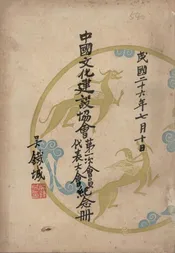 民國二十六年七月十日
中國文化建設協會
第一次會員
代表大會
紀念册
吳鐵城